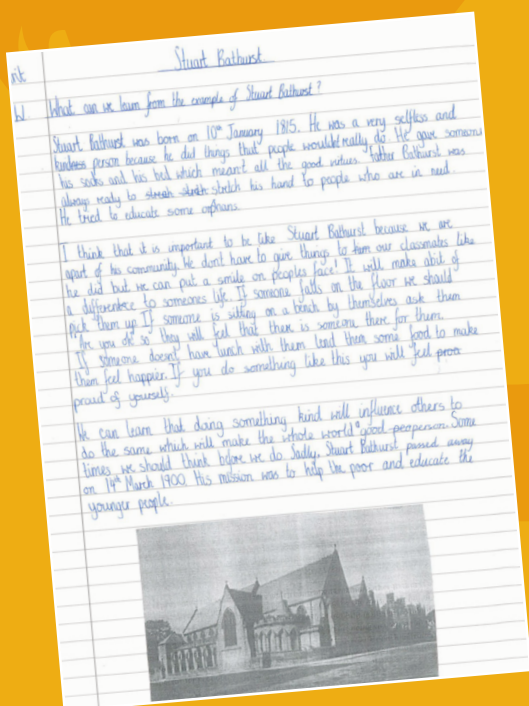 Stuart Bathurst
nit
W
What can we learn from the example of Stuart Bathurst?
Stuart Bathurst was born on 10th January 1815. He was a very selfless and
person because he did things that people wouldn't really do. He gave someone
his socks and his bed which meant all the good virtues. Father Bathurst was
always ready to stretch his hand to people who are in need.
He tried to educate some orphans.
I think that it is important to be like Stuart Bathurst because we are
apart of his community. We don't have to give things to our classmates like
he did but we can put a smile on peoples face! It will make abit of
a difference to someones life. If someone falls on the floor we should
pick them up. If someone is sitting on a bench by themselves ask them
"Are you ok" so they will feel that there is someone there for them.
If someone doesn't have lunch with them lend them some food to make
them feel happier. If you do something like this you will feel proo
proud of yourself.
We can learn that doing something kind will influence others to
do the same which will make the whole world good Some
times we should think before we do. Sadly, Stuart Bathurst passed away
on 14th March 1900. His mission was to help the poor and educate the
younger people.